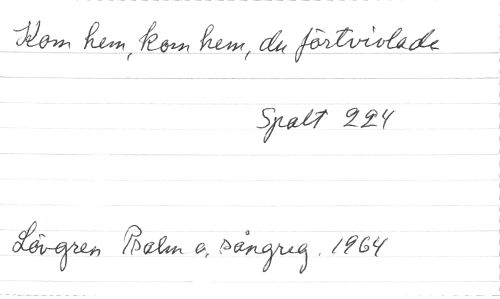 Kom hem, kom hem, du förtvivlade
Spalt 224
Lövgren Psalm o. sångreg. 1964